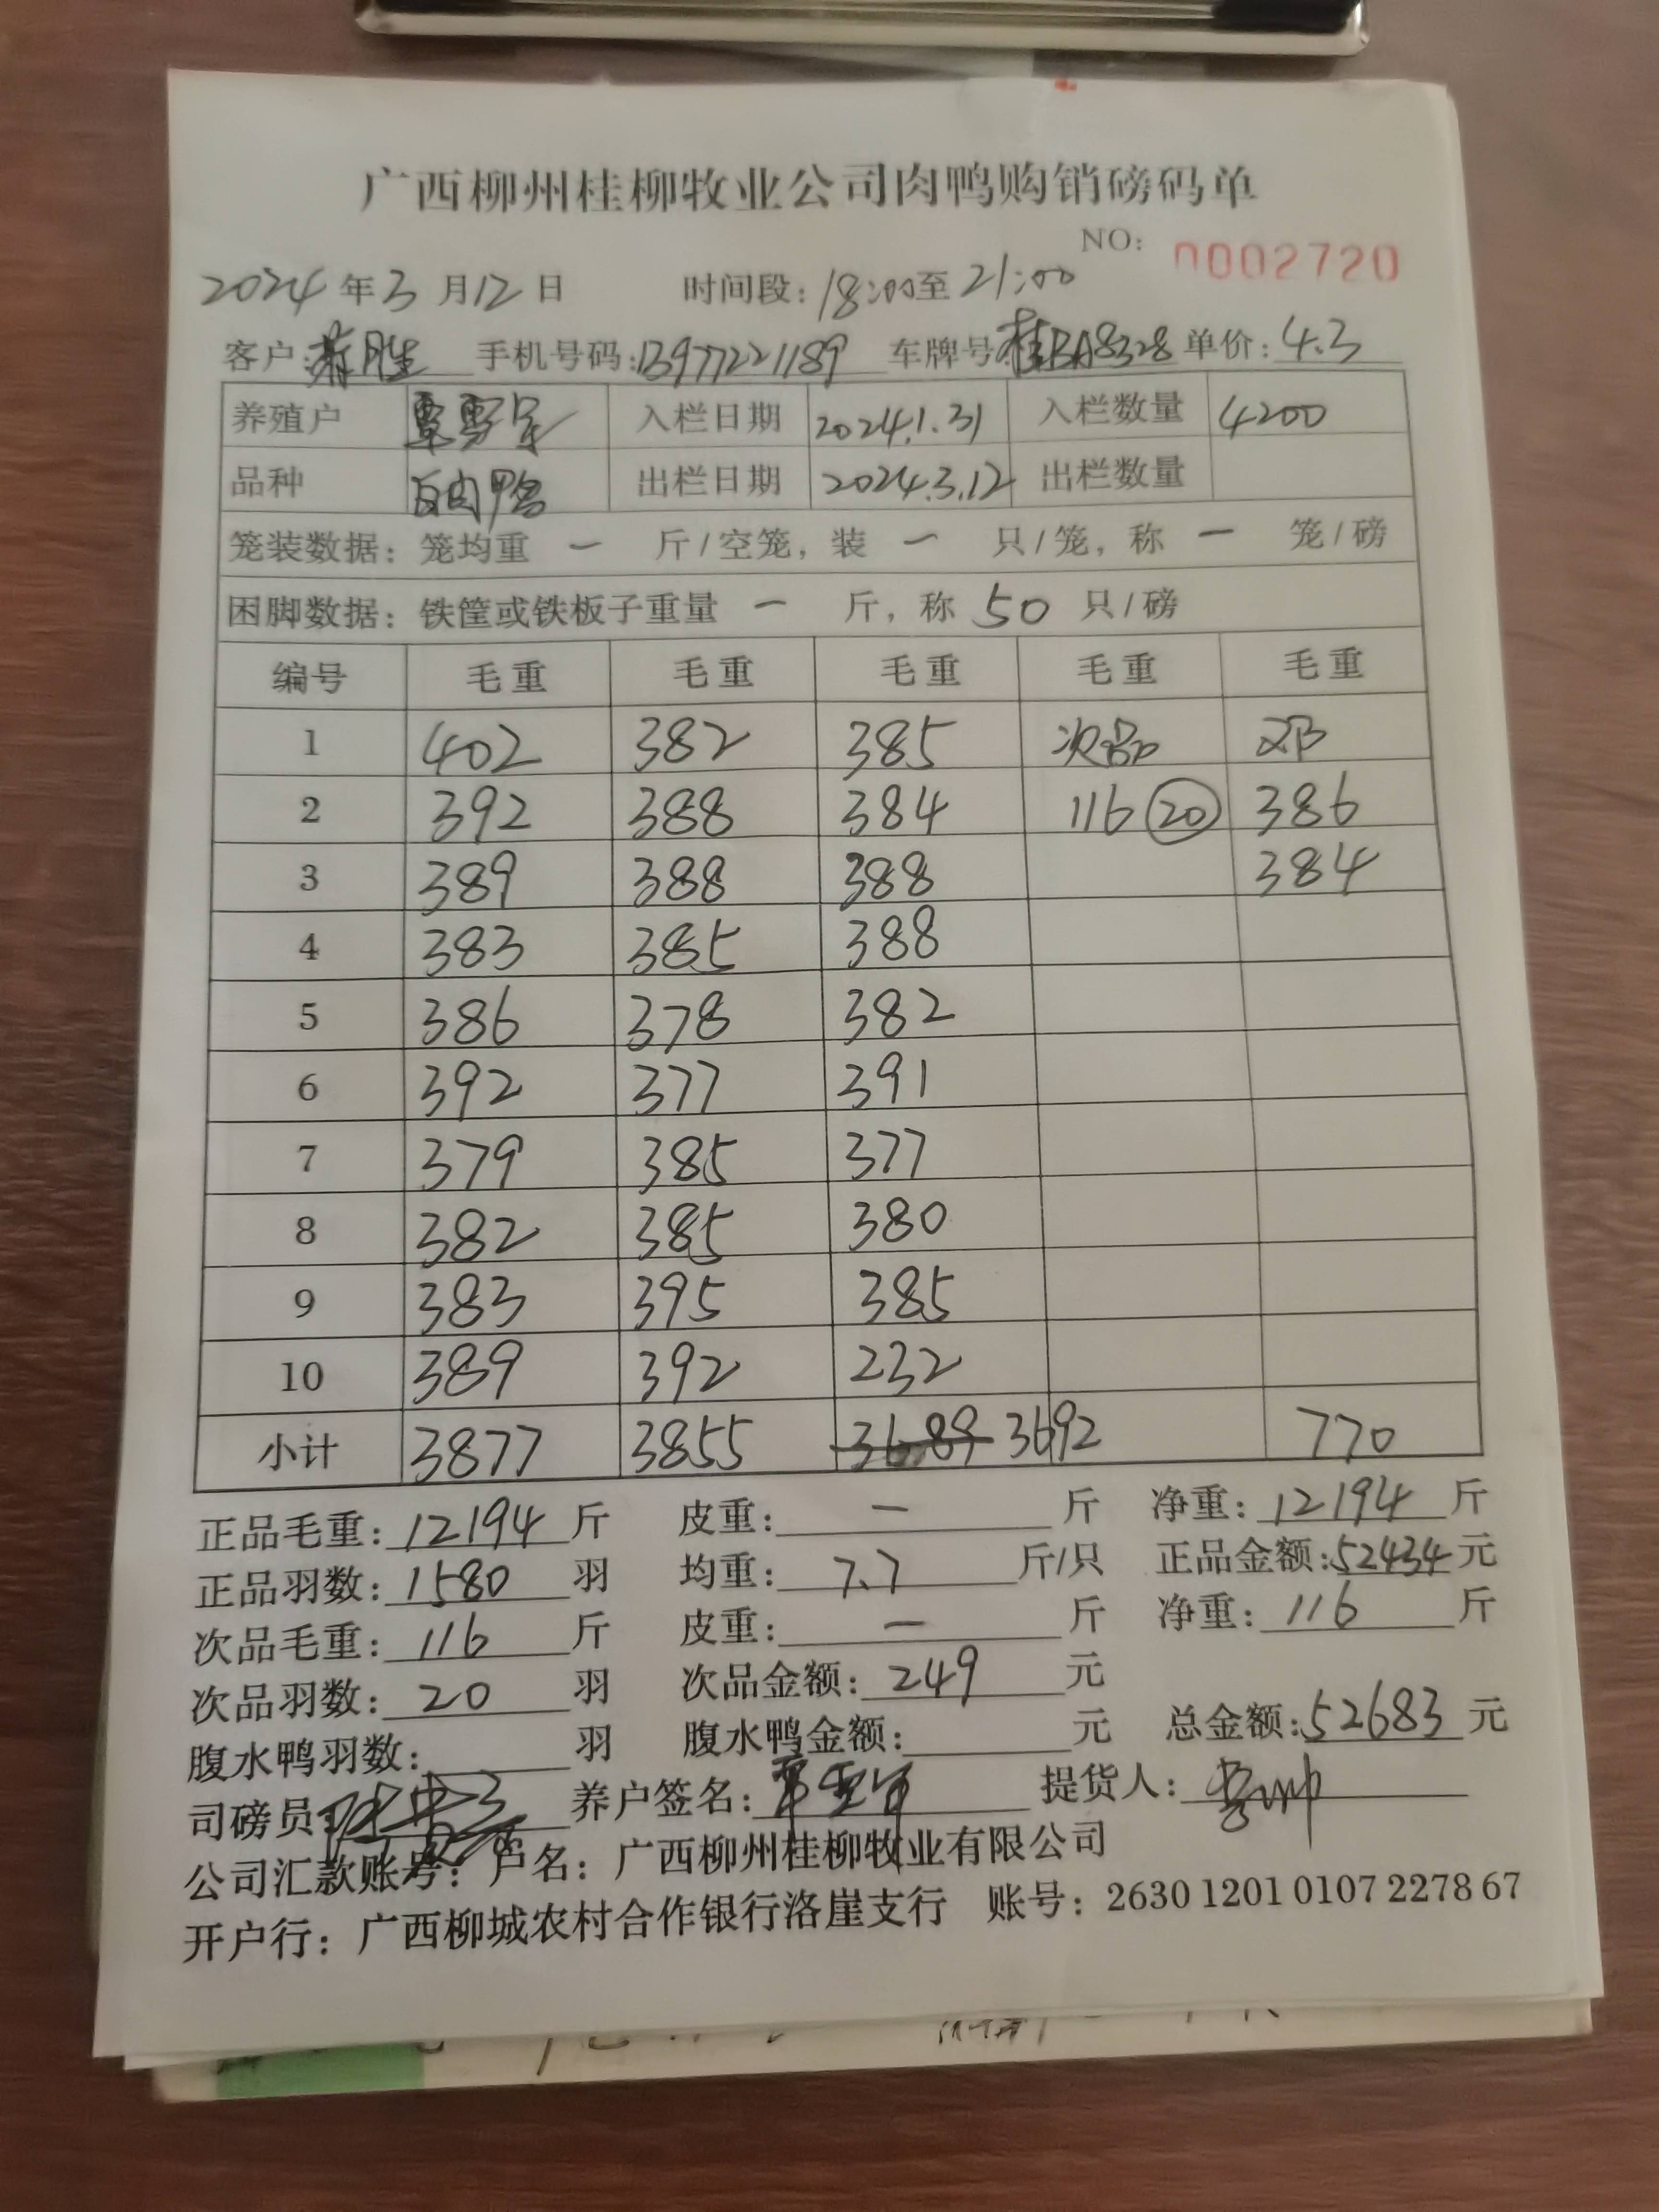 广西柳州桂柳牧业公司肉鸭购销磅码单
NO: 0002720
2024年3月12日 时间段:18:00至21:00
客户: 手机号码:13977221189 车牌号:桂BA8328 单价:4.3
养殖户 覃 入栏日期 2024.1.31 入栏数量 4200
品种 白肉鸭 出栏日期 2024.3.12 出栏数量
笼装数据:笼均重 一 斤/空笼,装 一 只/笼,称 一 笼/磅
困脚数据:铁筐或铁板子重量 一 斤,称 50 只/磅
编号 毛重 毛重 毛重 毛重 毛重
1 402 382 385 次品 邓
2 392 388 384 116 20 386
3 389 388 388 384
4 383 385 388
5 386 378 382
6 392 377 391
7 379 385 377
8 382 385 380
9 383 395 385
10 389 392 232
小计 3877 3855 3689 3692 770
正品毛重:12194斤 皮重:一斤 净重:12194斤
正品羽数:1580羽 均重:7.7斤/只 正品金额:52434元
次品毛重:116斤 皮重:一斤 净重:116斤
次品羽数:20羽 次品金额:249元
腹水鸭羽数: 羽 腹水鸭金额: 元 总金额:52683元
司磅员: 养户签名: 提货人:
公司汇款账号:户名:广西柳州桂柳牧业有限公司
开户行:广西柳城农村合作银行洛崖支行 账号:2630 1201 0107 2278 67